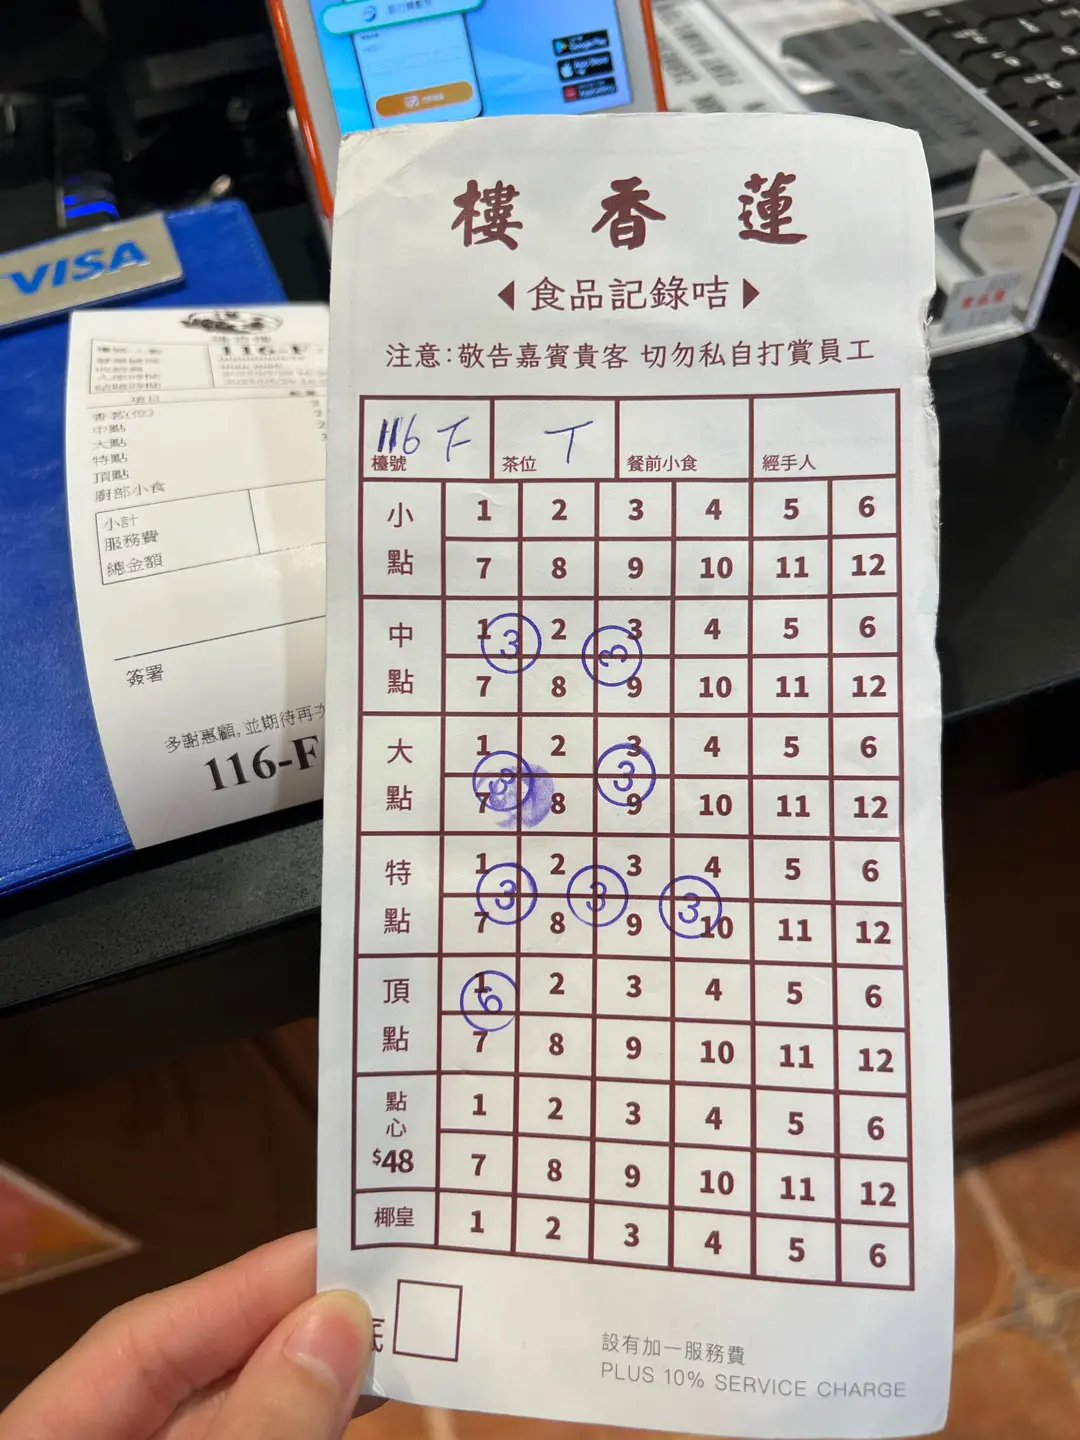 Google Play
App Store
AppGallery
VISA
樓 香 蓮
食品記錄咭
注意:敬告嘉賓貴客 切勿私自打賞員工
116 F
檯號
T
茶位
餐前小食
經手人
小點
1 2 3 4 5 6
7 8 9 10 11 12
中點
1 2 3 4 5 6
3 3
7 8 9 10 11 12
大點
1 2 3 4 5 6
3 3
7 8 9 10 11 12
特點
1 2 3 4 5 6
3 3 3
7 8 9 10 11 12
頂點
1 2 3 4 5 6
6
7 8 9 10 11 12
點心 $48
1 2 3 4 5 6
7 8 9 10 11 12
椰皇
1 2 3 4 5 6
設有加一服務費
PLUS 10% SERVICE CHARGE
116-F
項目
香茗(位)
中點
大點
特點
頂點
廚部小食
小計
服務費
總金額
簽署
多謝惠顧,並期待再次
116-F